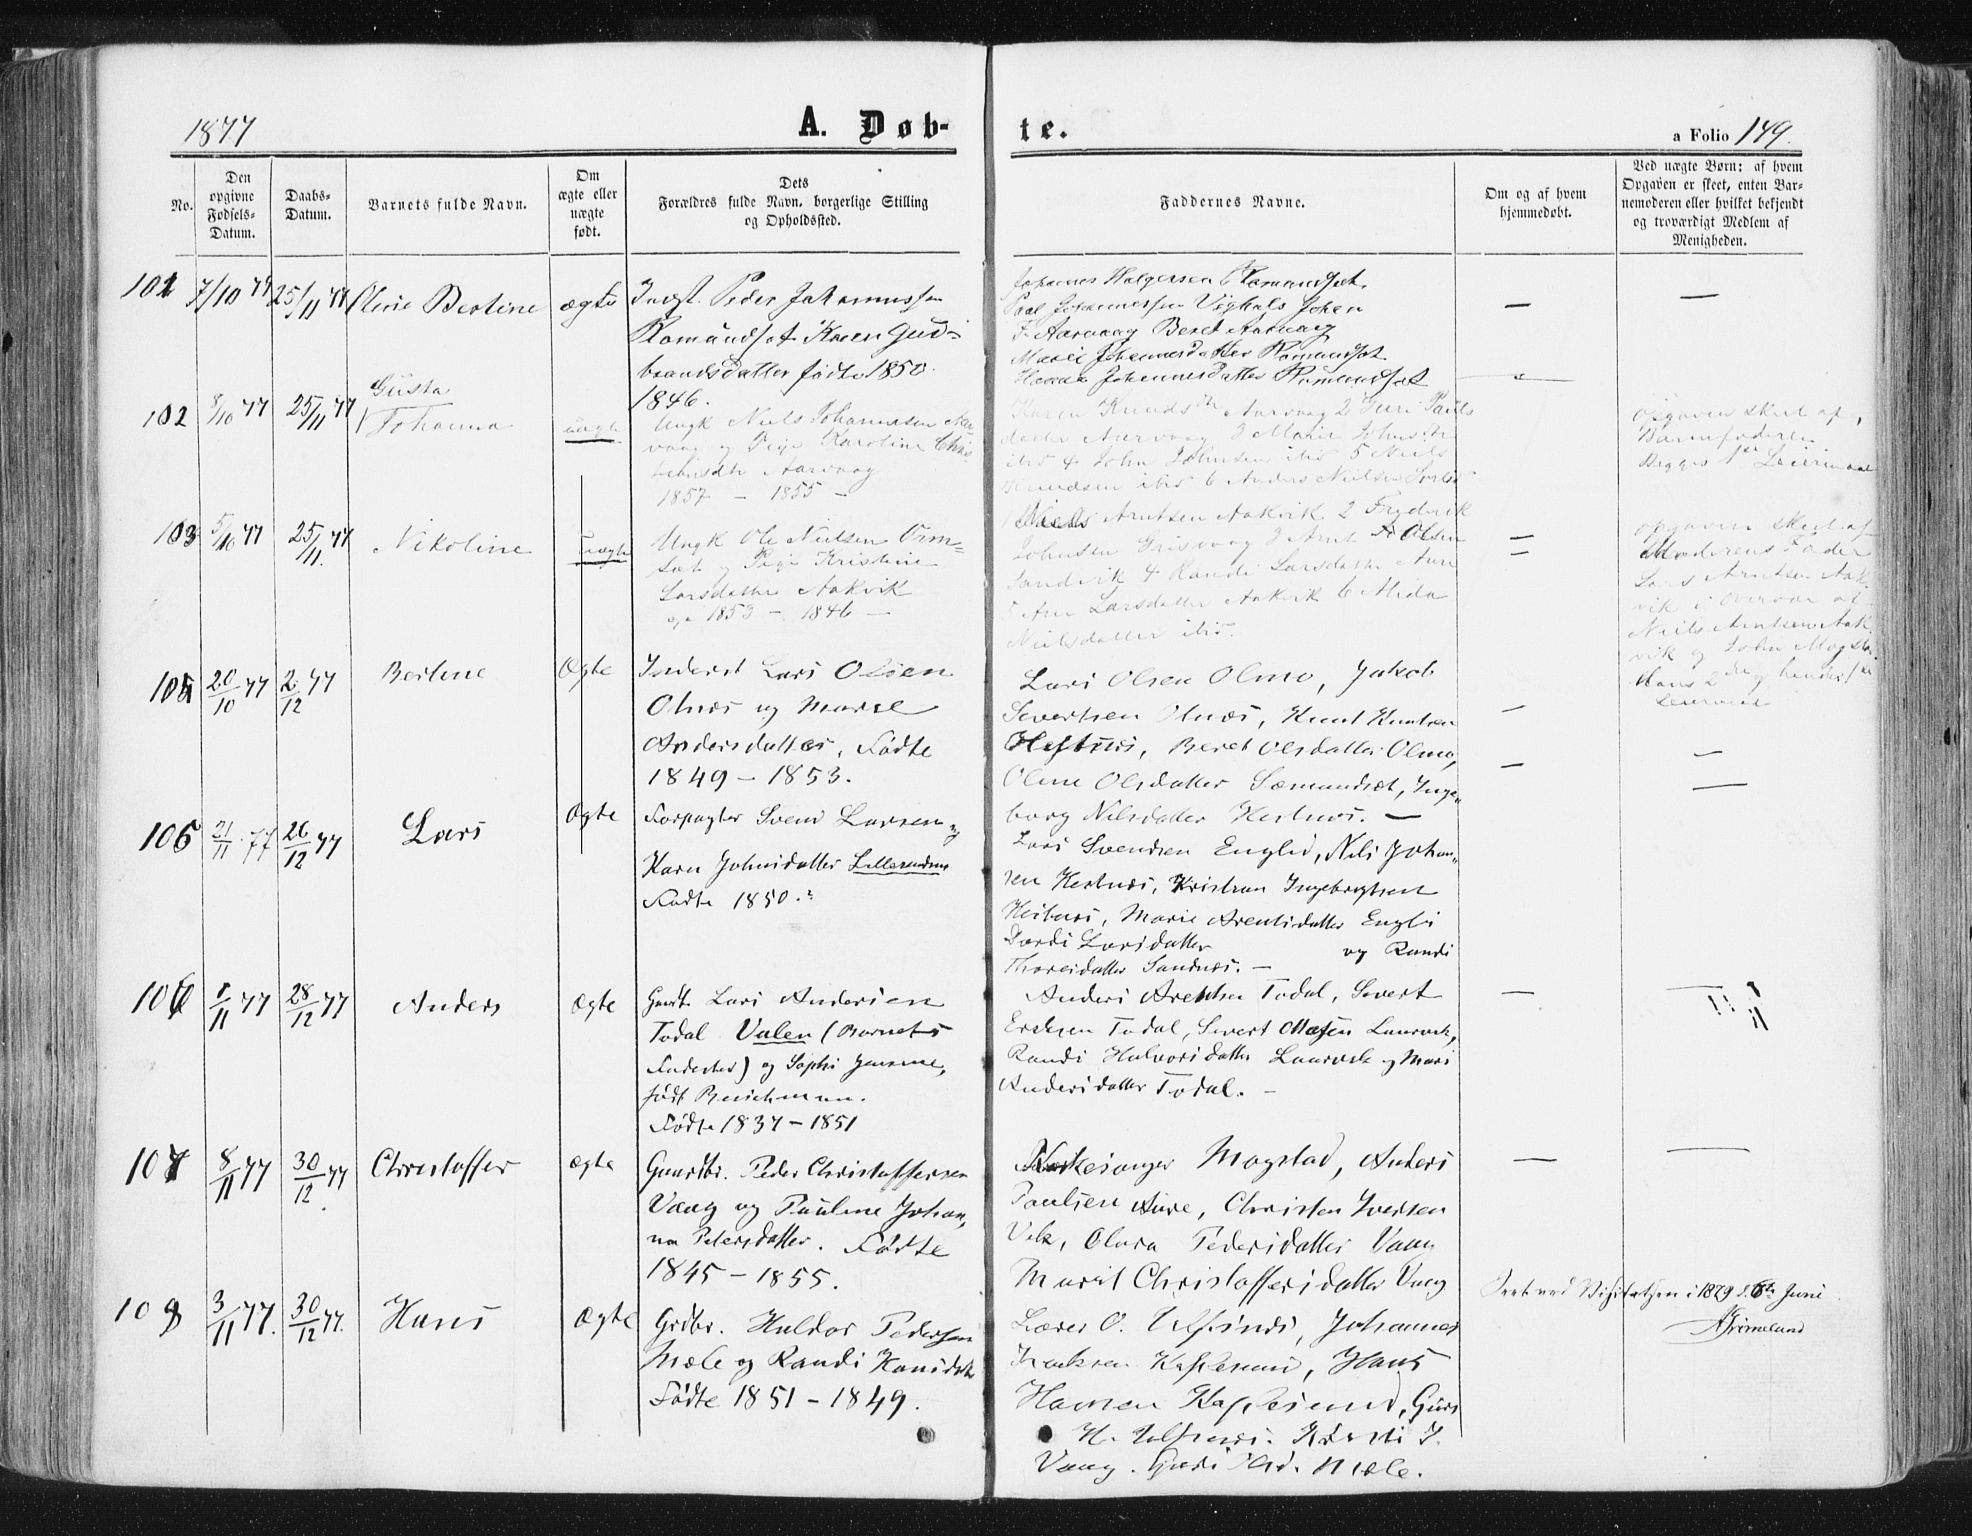 1877
A. Døb-
te.
a Folio 149.
No.
Den opgivne Fødsels-Datum.
Daabs-Datum.
Barnets fulde Navn.
Om ægte eller uægte født.
Dets
Forældres fulde Navn, borgerlige Stilling
og Opholdssted.
Faddernes Navne.
Om og af hvem
hjemmedøbt.
Ved uægte Børn: af hvem
Opgaven er skeet, enten Bar-
nemoderen eller hvilket bekjendt
og troværdigt Medlem af
Menigheden.
101 7/10 77 25/11 77 Oline Bertine ægte
Indst. Peder Johannessen
Romundset Karen Gud-
brandsdatter fødte 1850
1846.
Johannes Halgersen Romundset
Paal Johannessen Vighals Johan
F. Aarvaag Beret Aarvaag
Marit Johannesdatter Romundset
Johannesdatter Romundset
102 8/10 77 25/11 77 Gusta
Johanna uægte
Ungk Niels Johannesen Aar-
vaag og Pige Karoline Chris-
Aarvaag
1857 - 1855 -
Karen Knudsdtr Aarvaag 2 Guri Pauls
datter Aarvaag 3 Marit Johnsdtr
ibid 4 John Johnsen ibid 5 Niels
Knudsen ibid 6 Anders Nielsen
Opgaven skeet af
Barnefaderen
Begges 1ste Leiermaal
103 5/10 77 25/11 77 Nikoline Uægte
Ungk Ole Nielsen Orm-
sæt og Pige Kristine
Larsdatter Aakvik
1853 - 1846 -
Niels Arntsen Aakvik 2 Frederik
Johnsen Grisvaag 3 Arnt Olsen
Sandvik 4 Randi Larsdatter Aure
5 Ane Larsdatter Aakvik 6 Alida
Nielsdatter ibid.
opgaven skeet af
Moderens Fader
Lars Arntsen Aak-
vik i Overvær af
Niels Arntsen Aak
vik og John Magsta
Hans 2den og hendes 1ste
Leiermaal
105 20/10 77 2/12 77 Berline Ægte
Inderst Lars Olsen
Olnes og Marie
Andersdatter. Fødte
1849 - 1853.
Lars Olsen Olmo, Jakob
Sivertsen Olnes, Knut Knutsen
Hestnes, Beret Olsdatter Olmo,
Oline Olsdatter Sæmundset, Inge-
borg Nilsdatter Hestnes. -
106 21/11 77 26/12 77 Lars Ægte
Forpagter Svend Larsen og
Karn Johnsdatter Lillesundnes
Fødte 1850.
Lars Svendsen Englid, Nils Johan-
sen Hestnes, Kristian Ingebrigtsen
Hestnes, Marie Arentsdatter Engli
Dordi Larsdatter og Randi
Thoresdatter Sandnes. -
106 1/11 77 28/12 77 Anders Ægte
Gaardb. Lars Andersen
Todal Valen (Barnets
Fødested) og Sophi Jensine,
født Buschmann.
Fødte 1837 - 1851
Anders Arentsen Todal, Sivert
Ericksen Todal, Sivert Olsen Laurvik,
Randi Halvorsdatter Laurvik og Mari
Andersdatter Todal. -
107 8/11 77 30/12 77 Christoffer ægte
Gaardbr. Peder Christoffersen
Vaag og Pauline Johan-
na Petersdatter. Fødte
1845 - 1855.
Kirkesanger Magstad, Anders
Paulsen Aure, Christen Iversen
Vik, Olava Pedersdatter Vaag
Marit Christoffersdatter Vaag
108 3/11 77. 30/12 77. Hans Ægte
Grdbr. Haldor Pedersen
Mæle og Randi Hansdatter
Fødte 1851 - 1849.
Lærer O. Ulfsnes, Johannes
Isaksen Kjelesund, Hans
Hansen Kjelesund, Guri
H. Ulfsnes. Kirsti J.
Vaag. Guri Olsd. Mæle.
Seet ved Visitatsen i 1879 d. 6te Juni
A Grimelund